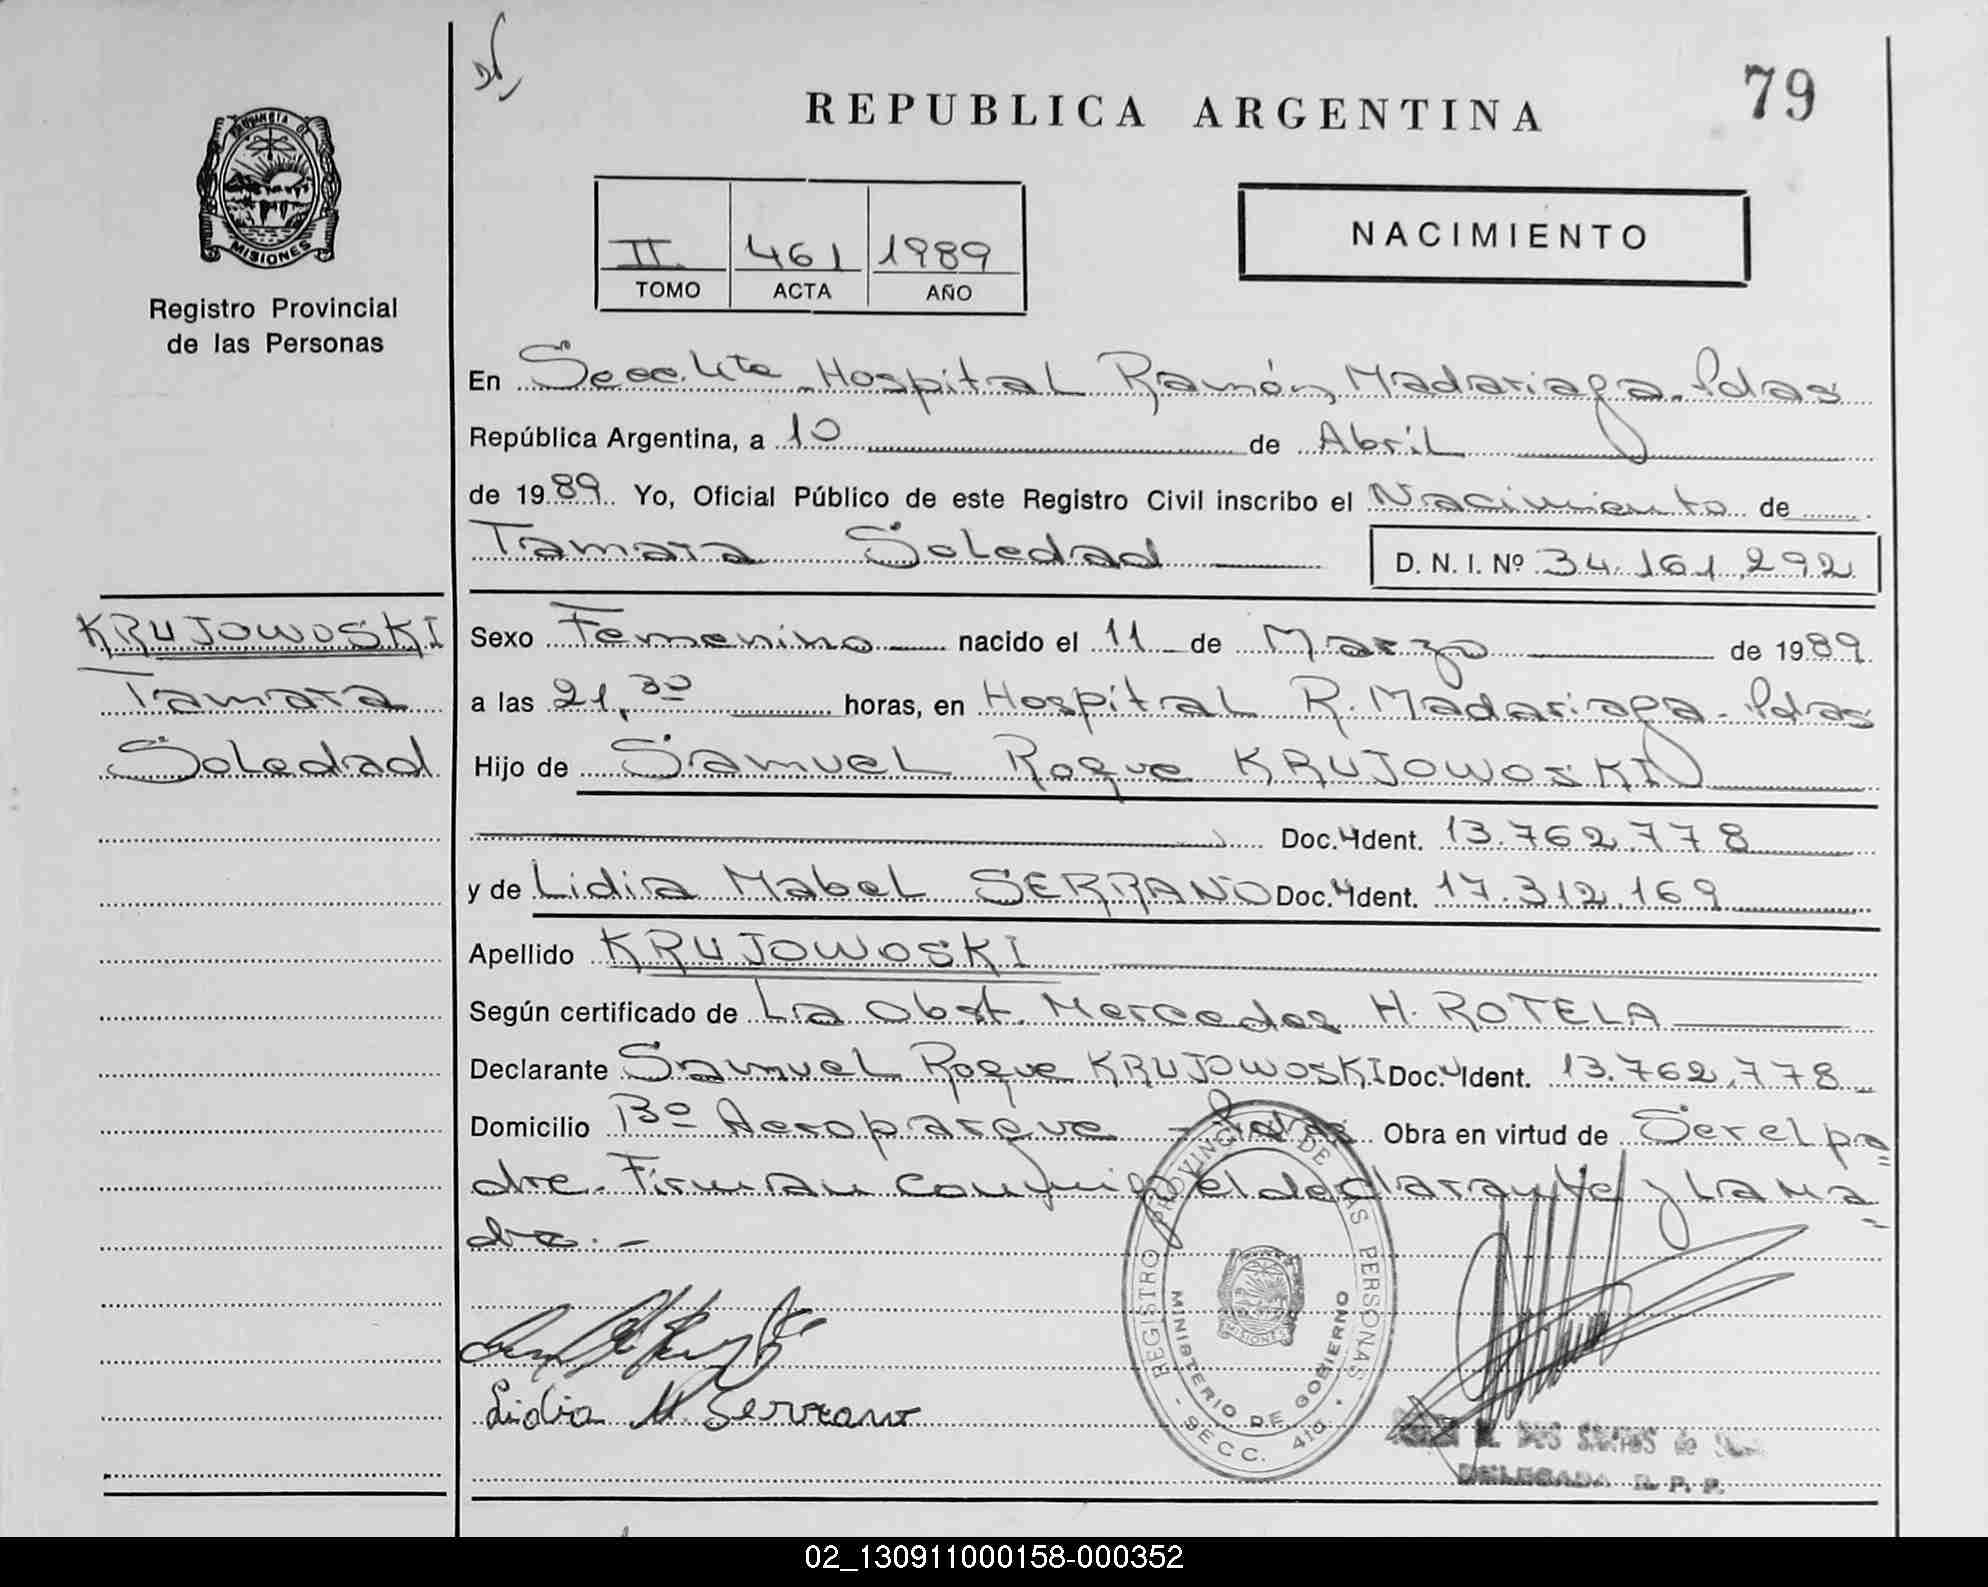 79
REPUBLICA ARGENTINA
PROVINCIA DE
MISIONES
Registro Provincial
de las Personas
II 461 1989
TOMO ACTA AÑO
NACIMIENTO
En Secc. 4ta Hospital Ramón Madariaga - Pdas
República Argentina, a 10 de Abril
de 1989 Yo, Oficial Público de este Registro Civil inscribo el Nacimiento de
Tamara Soledad D. N. I. Nº 34.161.292
KRUJOWOSKI
Tamara
Soledad
Sexo Femenino nacido el 11 de Marzo de 1989
a las 21,30 horas, en Hospital R. Madariaga - Pdas
Hijo de Samuel Roque KRUJOWOSKI
Doc. Ident. 13.762.778
y de Lidia Mabel SERRANO Doc. Ident. 17.312.169
Apellido KRUJOWOSKI
Según certificado de La Obst. Mercedes H. ROTELA
Declarante Samuel Roque KRUJOWOSKI Doc. Ident. 13.762.778
Domicilio Bº Aeroparque - Pdas Obra en virtud de Ser el pa=
dre. Firman conmigo el declarante y La Ma=
dre.-
Lidia M. Serrano
REGISTRO PROVINCIAL DE LAS PERSONAS
MINISTERIO DE GOBIERNO
MISIONES
- SECC. 4ta -
DOS SANTOS de
DELEGADA R. P. P.
02_130911000158-000352